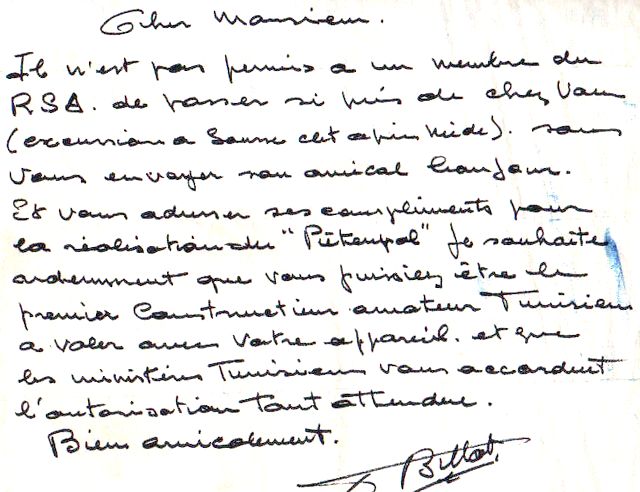 Cher Monsieur.
Il n'est pas permis a un membre du
R.S.A. de passer si près de chez vous
(excursion a Sousse cet apin Midi). sans
vous envoyer son amical bonjour.
Et vous adresser ses compliments pour
la réalisation du "Piétenpol" Je souhaite
ardemment que vous puissiez être le
premier Constructeur amateur Tunisien
a voler avec votre appareil. et que
les ministères Tunisiens vous accordent
l'autorisation tant attendue.
Bien amicalement.
Billot